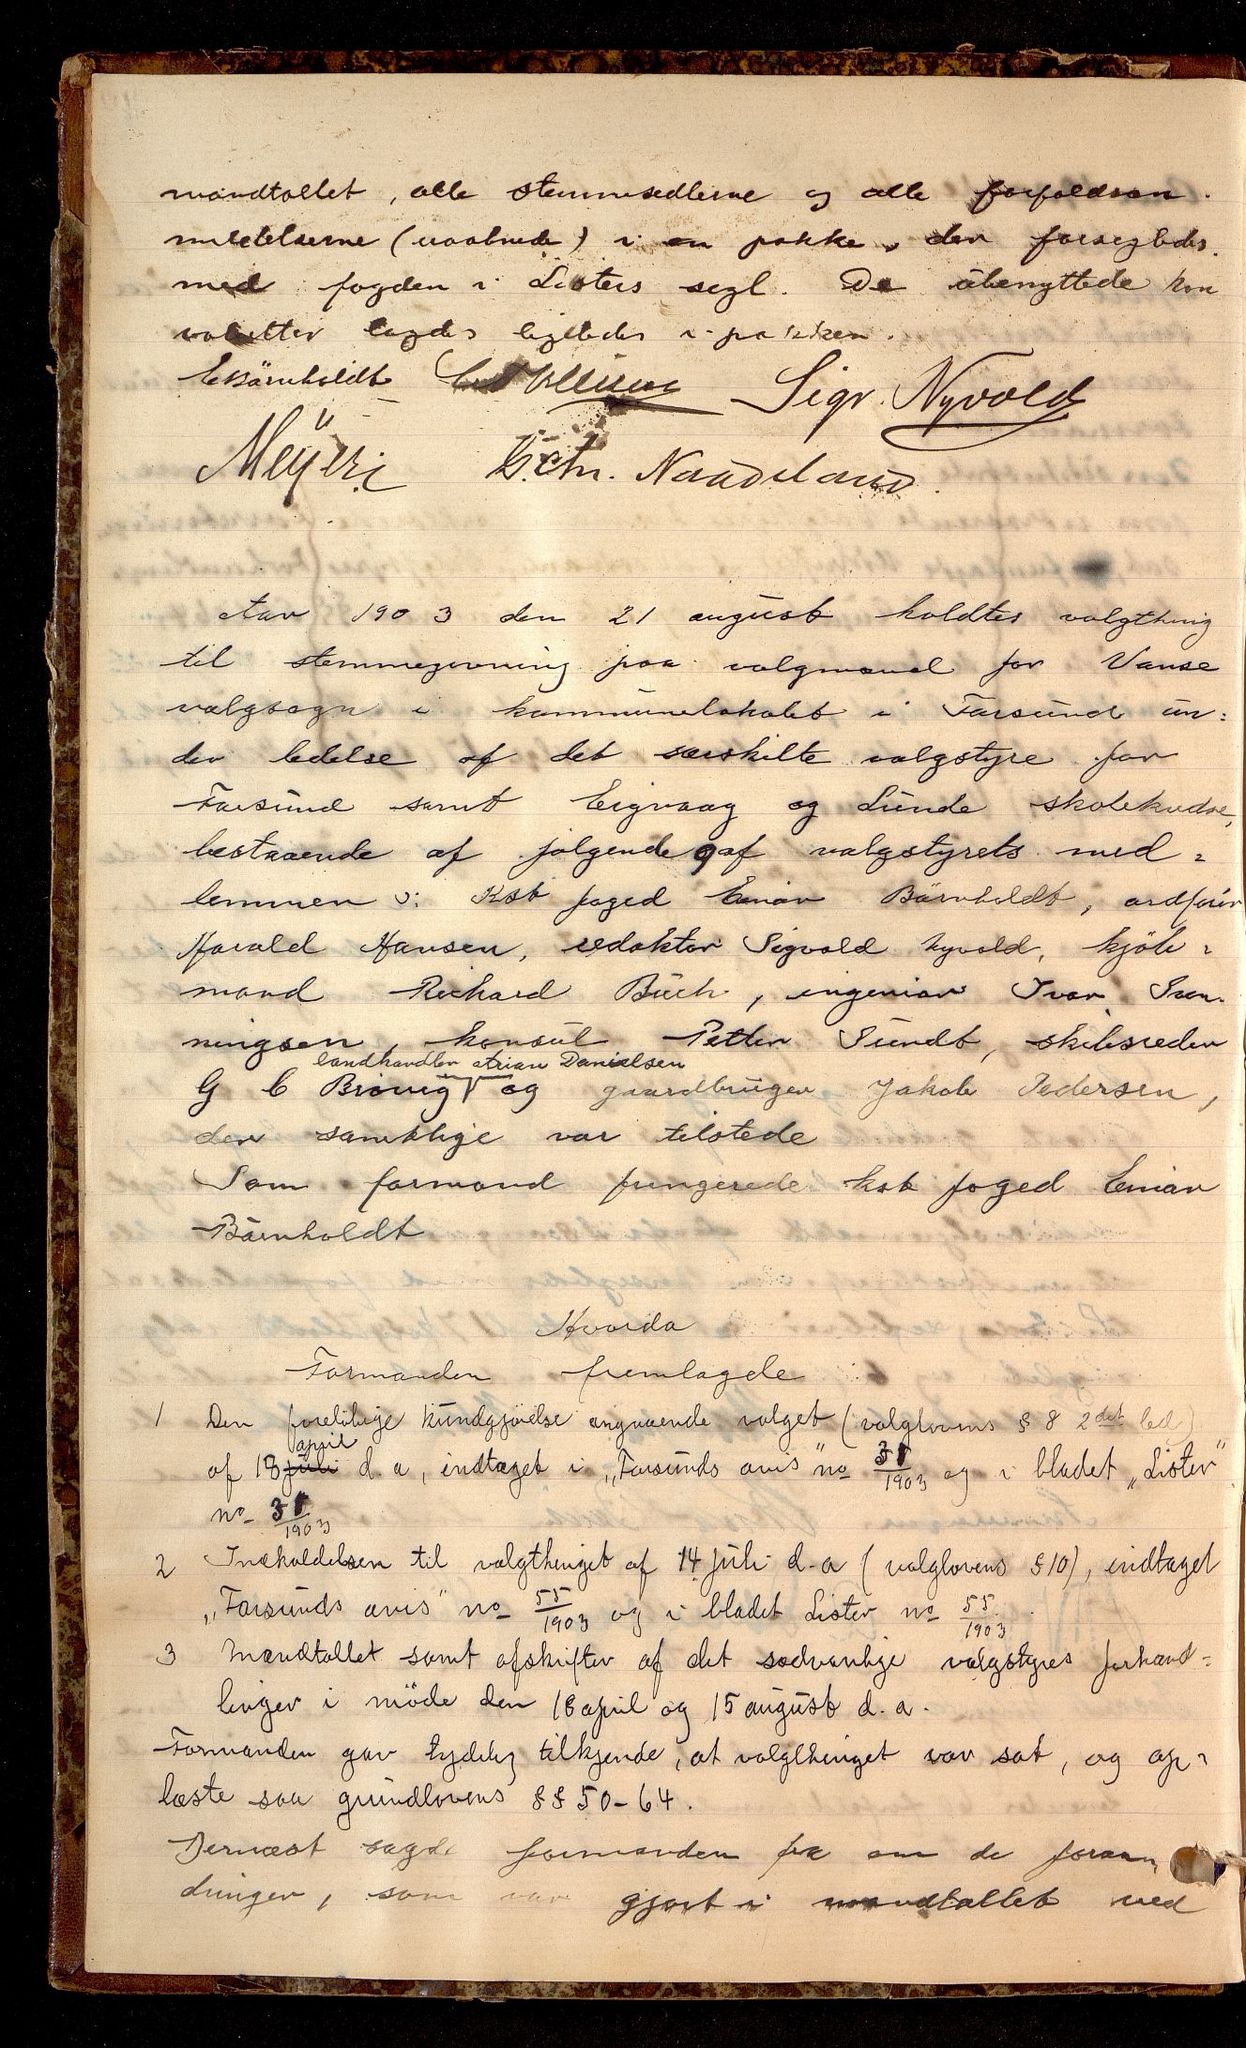 mandtallet, alle stemmesedlerne og alle forfaldsan-
meldelserne (uaabnede) i en pakke, der forsegledes
med fogden i Listers segl. De ubenyttede kon
volutter lagdes ligeledes i pakken.
EBärnholdt Sigv. Nyvold
Meyer G. Chr. Naadeland.
Aar 1903 den 21 august holdtes valgthing
til stemmegivning paa valgmænd for Vanse
valgsogn i kommunelokalet i Farsund un=
der ledelse af det særskilte valgstyre for
Farsund samt Eigvaag og Lunde skolekredse,
bestaaende af følgende 9 af valgstyrets med=
lemmer v: Kst foged Einar Bärnholdt, ordfører
Harald Hansen, redaktør Sigvald Nyvold, kjøb=
mand Richard Buch, ingeniør Ivar Sven-
ningsen, konsul Petter Sundt, skibsreder
landhandler Arian Danielsen
G C Brøvig og gaardbruger Jakob Pedersen,
der samtlige var tilstede
Som formand fungerede kst foged Einar
Bärnholdt
Hvorda
Formanden fremlagde
1 Den foreløbige kundgjørelse angaaende valget (valglovens § 8 2det led)
april
af 18 juli d.a, indtaget i „Farsunds avis" no 31/1903 og i bladet „Lister"
no 31/1903
2 Indkaldelsen til valgthinget af 14 juli d.a (valglovens § 10), indtaget
„Farsunds avis" no 55/1903 og i bladet Lister no 55/1903.
3 Mandtallet samt afskrifter af det sedvanlige valgstyres forhand=
linger i møde den 18 april og 15 august d.a.
Formanden gav tydelig tilkjende, at valgthinget var sat, og op=
læste saa grundlovens §§ 50-64.
Dernæst sagde formanden fra om de foran
dringer, som var gjort i mandtallet ved